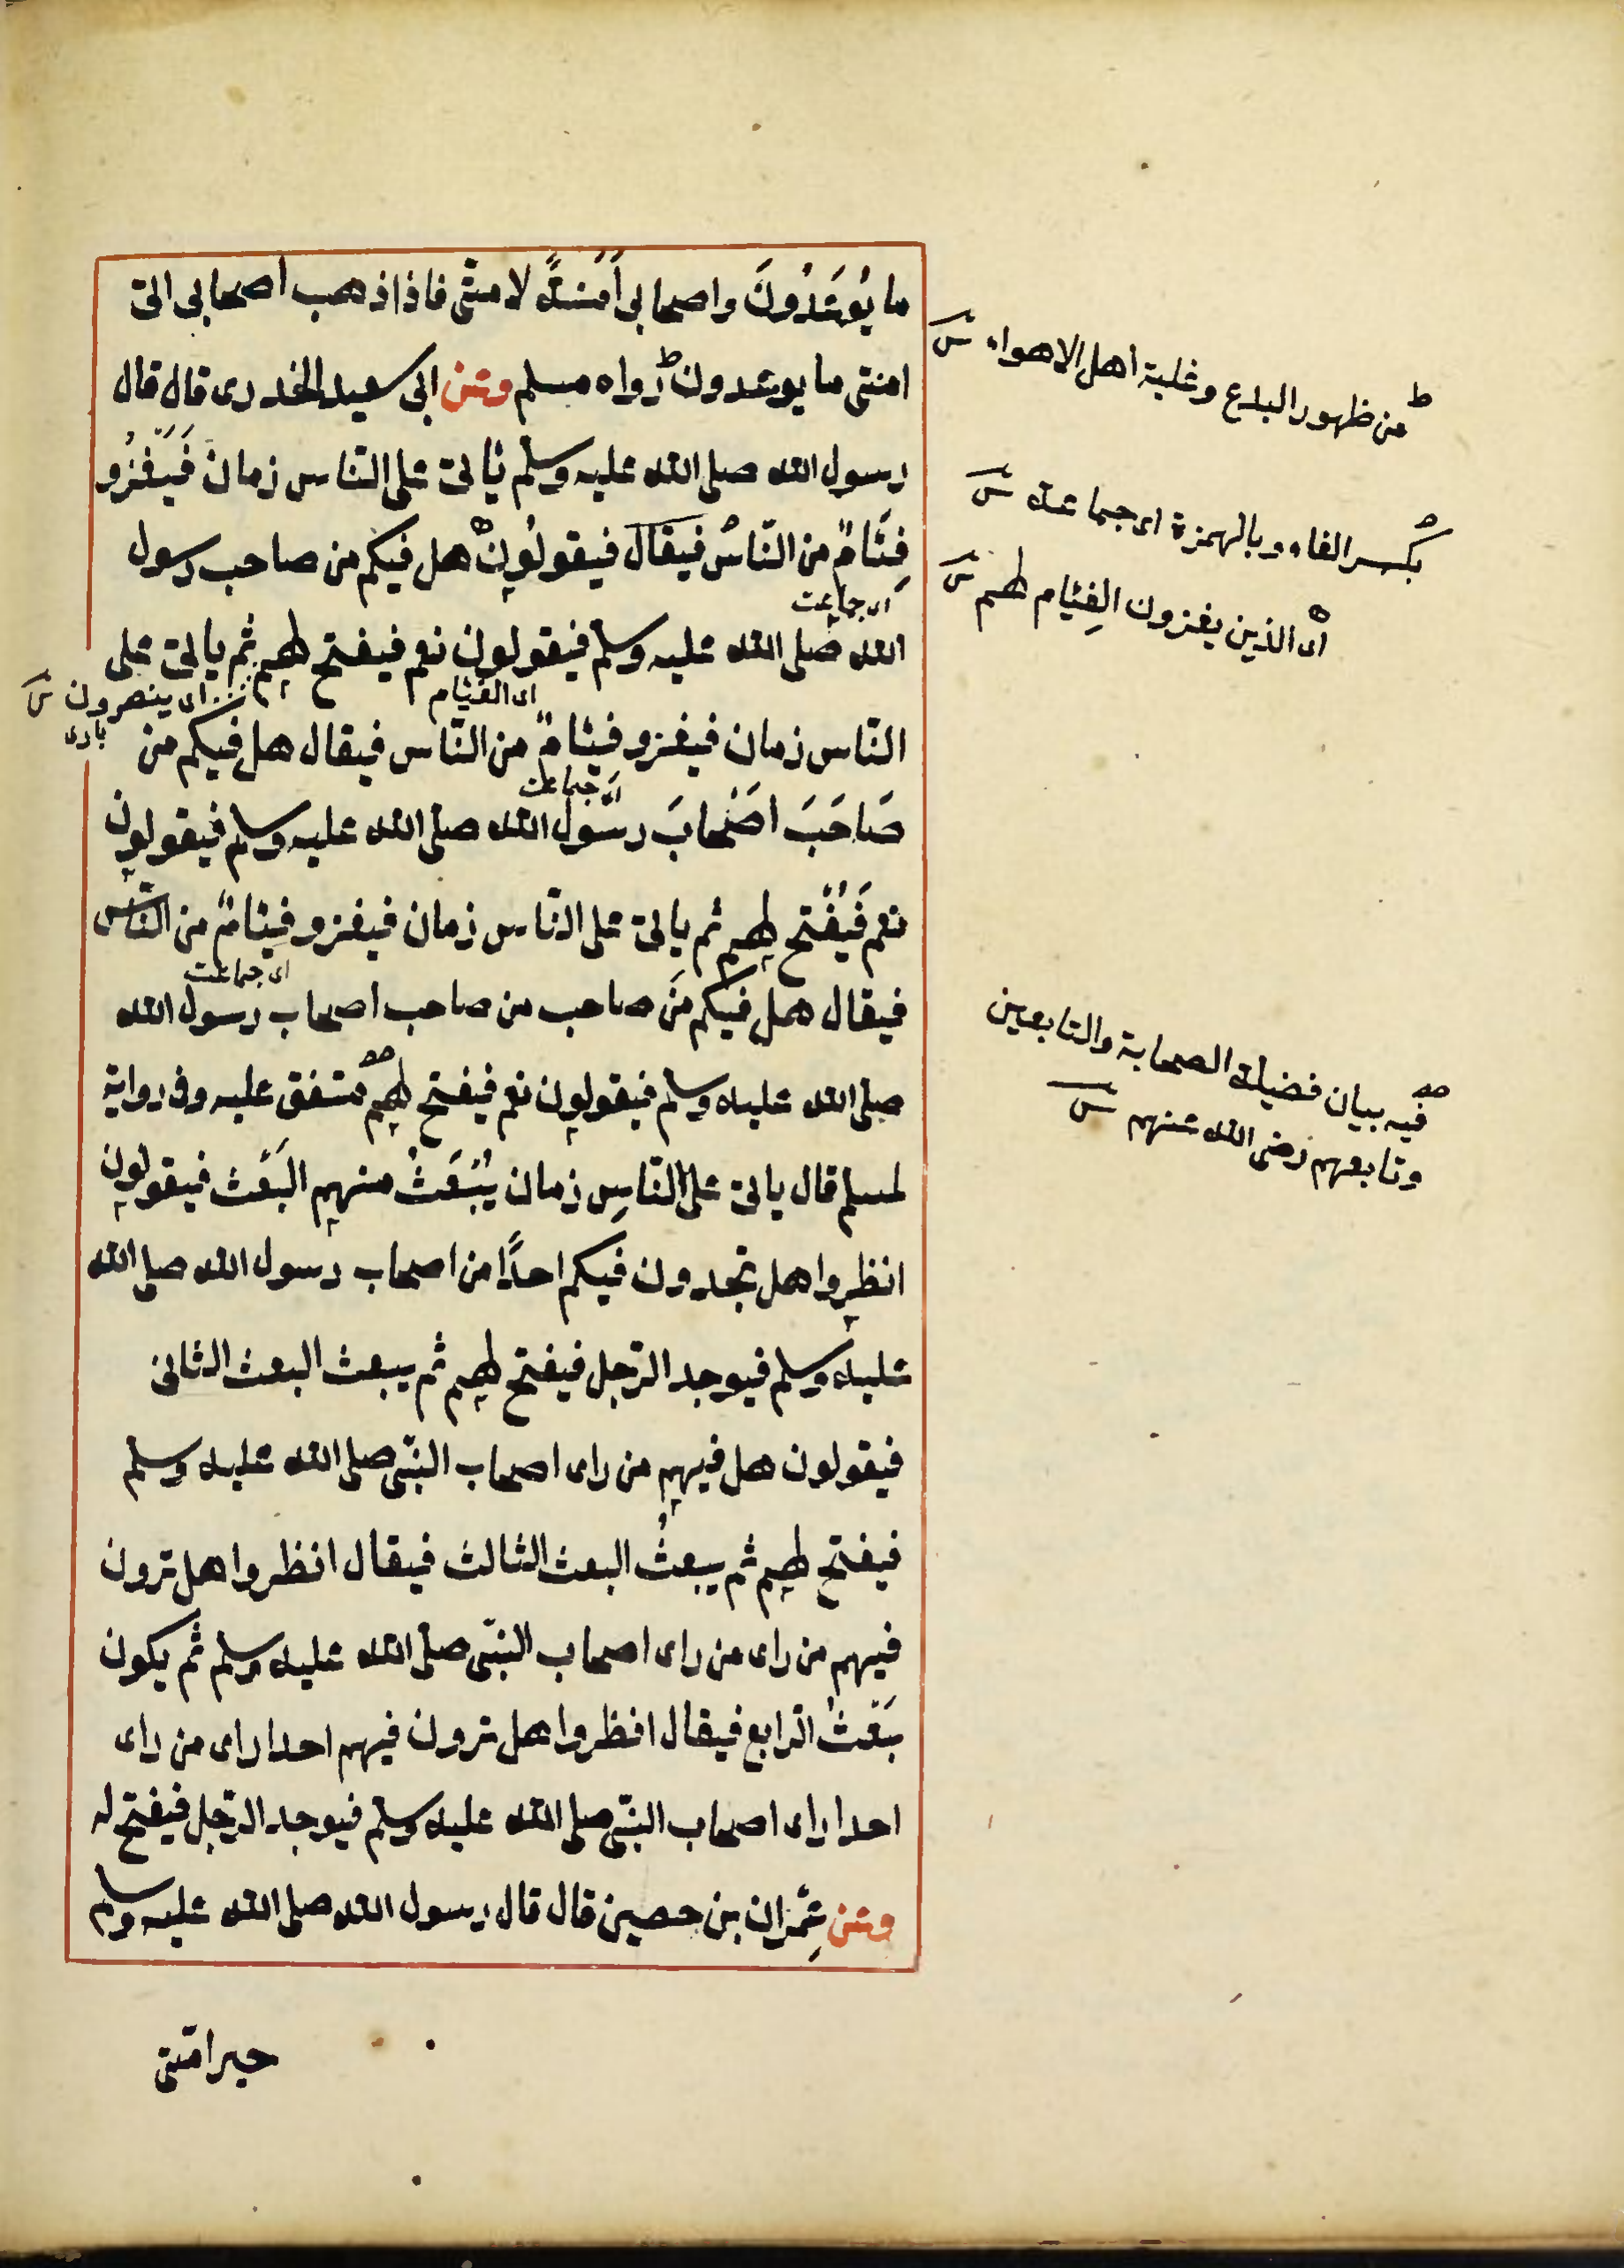 ما يُوعَدُونَ واصحابى اَمَنَةٌ لامتى فاذا ذهب اصحابى اتى
امتى ما يوعدون رواه مسلم وعن ابى سعيد الخدرى قال قال
رسول الله صلى الله عليه وسلم ياتى على النّاس زمان فَيَغْزُو
فِئَامٌ من النّاس فيقال فيقولون هل فيكم من صاحب رسول
اى جماعت
الله صلى الله عليه وسلم فيقولون نعم فيفتح لهم ثم ياتى على
اى الفئام
اى ينصرون
النّاس زمان فيغزو فئامٌ من النّاس فيقال هل فيكم من
اى جماعت
صَاحَبَ اصْحابَ رسول الله صلى الله عليه وسلم فيقولون
نعم فَيُفْتح لهم ثم ياتى على النّاس زمان فيغزو فئامٌ من النّاس
اى جماعت
فيقال هل فيكم مَن صاحب من صاحب اصحاب رسول الله
صلى الله عليه وسلم فيقولون نعم فيفتح لهم متفق عليه وفى رواية
لمسلم قال ياتى على النّاسِ زمان يُبْعَثُ منهم البَعْث فيقولون
انظروا هل تجدون فيكم احدًا من اصحاب رسول الله صلى الله
عليه وسلم فيوجد الرّجل فيفتح لهم ثم يبعث البعث الثانى
فيقولون هل فيهم من راى اصحاب النّبى صلى الله عليه وسلم
فيفتح لهم ثم يبعثُ البعث الثالث فيقال انظروا هل ترون
فيهم من راى من راى اصحاب النّبى صلى الله عليه وسلم ثم يكون
بَعْثُ الرّابع فيقال انظروا هل ترون فيهم احدا راى من راى
احدا راى اصحاب النّبى صلى الله عليه وسلم فيوجد الرّجل فيفتح له
وعن عِمْران بن حصين قال قال رسول الله صلى الله عليه وسلم
خير امّتى
من ظهور البدع وغلبة اهل الاهواء
بكسر الفاء وبالهمزة اى جماعة
اى الذين يغزون الفِئام لهم
فيه بيان فضيلة الصحابة والتابعين
وتابعهم رضى الله عنهم